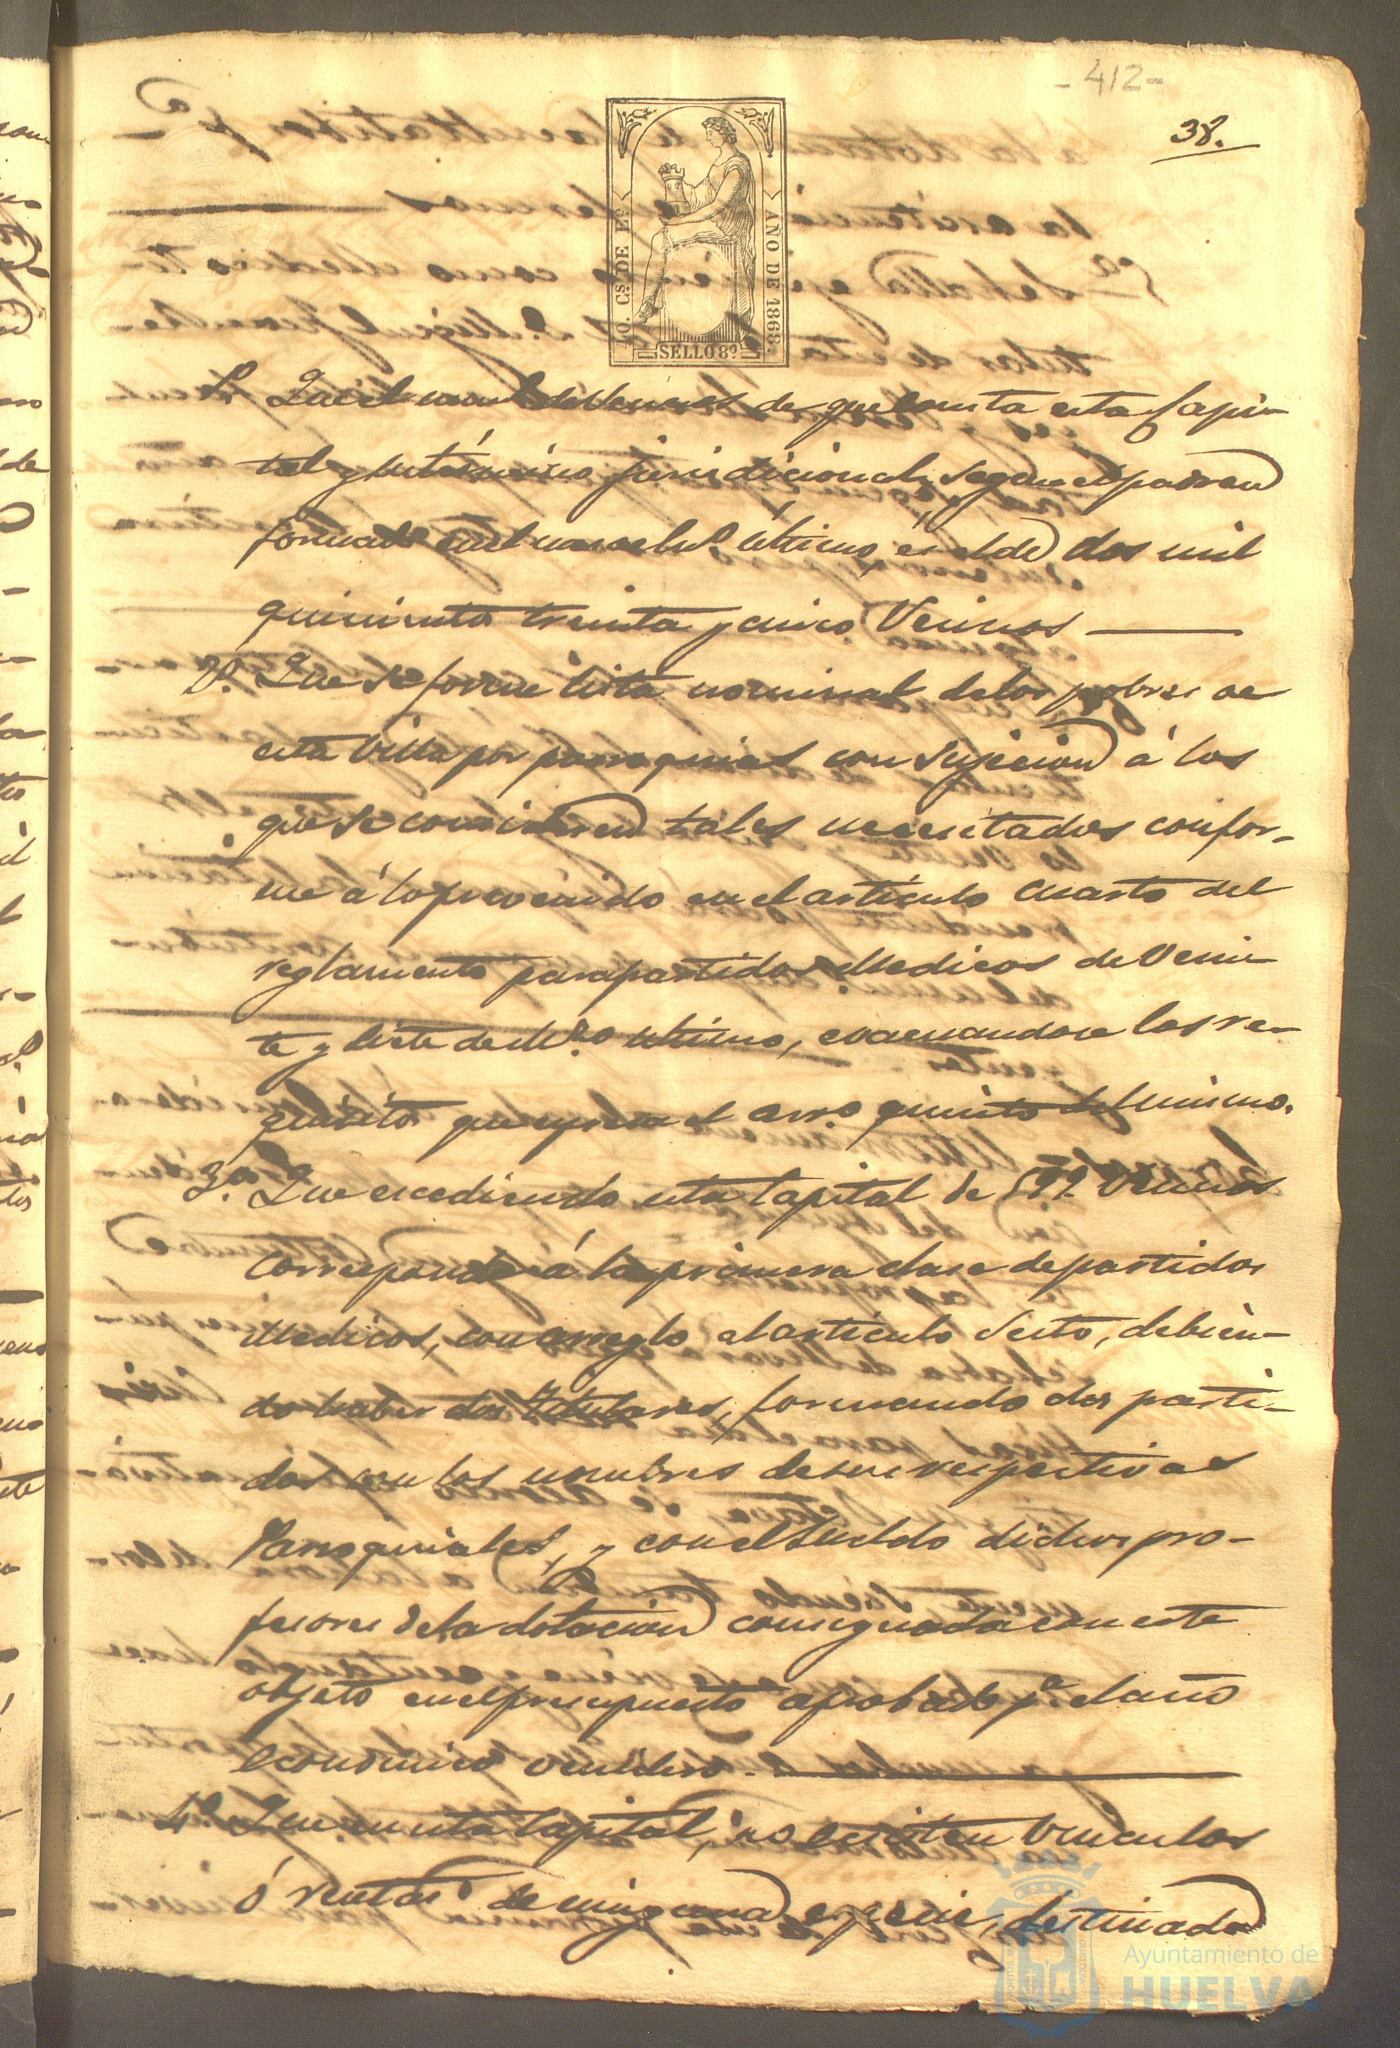 - 412 -
38.
40. Cs. DE Eo.
AÑO DE 1868.
SELLO 8º
1º Que el num.º de Vecinos de que consta esta Capi-
tal y su término jurisdicional, segun el padron
formado en el mes de último, es el de dos mil
quinientos treinta y cinco Vecinos
2º. Que se forme lista nominal de los pobres de
esta Villa por parroquias con sujecion á los
que se consideren tales necesitados confor-
me á lo prevenido en el artículo cuarto del
reglamento para partidos Medicos de Vein-
te y siete de M.zo último, evacuandose los re-
quisitos que expresa el arº. quinto del mismo.
3º. Que escediendo esta Capital de Vecinos
corresponde á la primera clase de partidos
Medicos, con arreglo al artículo Sesto, debien-
do haber dos titulares, formando dos parti-
dos con los nombres de sus respectivas
Parroquiales, y con el sueldo dichos pro-
fesores de la dotacion consignada con este
objeto en el presupuesto aprobado pª. el año
económico venidero.
4º. Que en esta Capital, no ecsisten vinculos
ó rentas de ninguna especie, destinadas
Ayuntamiento de
HUELVA